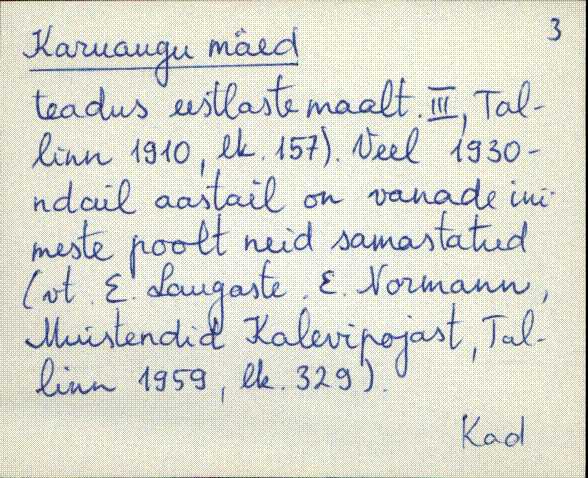 3
Karuaugu mäed
teadus eestlaste maalt. III, Tal-
linn 1910, lk. 157). Veel 1930-
ndail aastail on vanade ini-
meste poolt neid samastatud
(vt. E. Laugaste. E. Normann,
Muistendid Kalevipojast, Tal-
linn 1959, lk. 329).
Kad